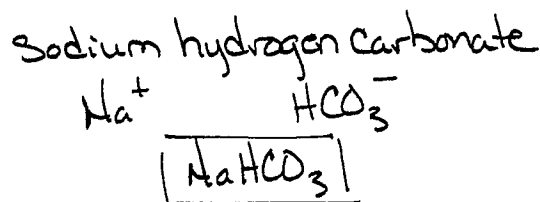 Sodium hydrogen carbonate
Na⁺ HCO₃⁻
NaHCO₃